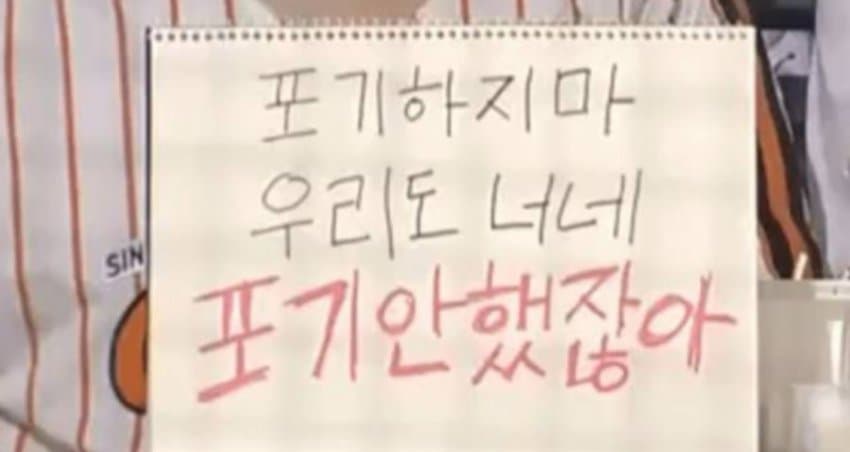 포기하지마
우리도 너네
SIN
포기안했잖아